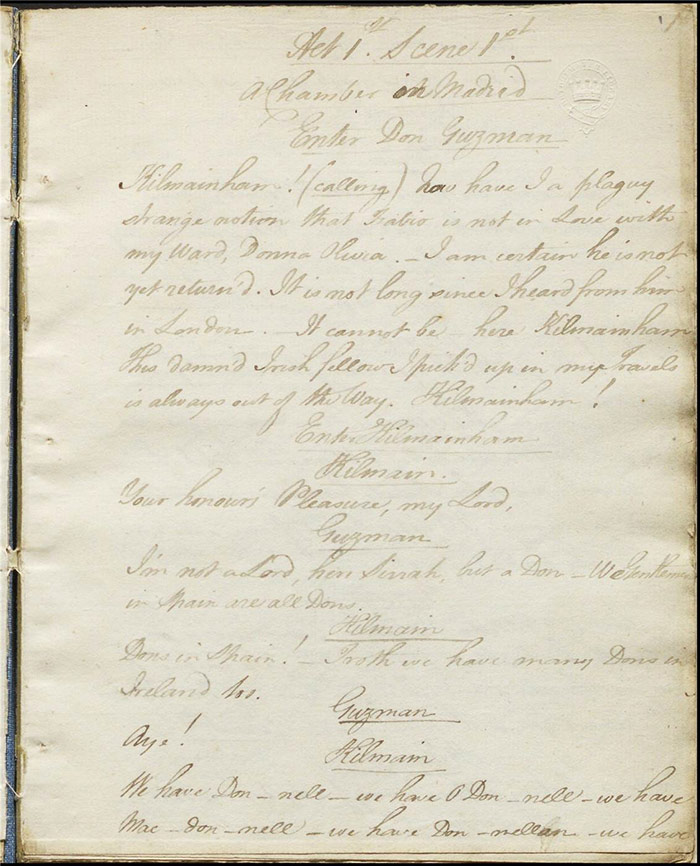 1
Act 1st. Scene 1st.
A Chamber in Madrid
Enter Don Guzman
Kilmainham! (calling) Now have I a plaguy
strange notion that Fabio is not in Love with
my Ward, Donna Olivia. – I am certain he is not
yet return'd. It is not long since I heard from him
in London. – It cannot be – here Kilmainham
This damn'd Irish fellow I pick'd up in my Travels
is always out of the Way. Kilmainham!
Enter Kilmainham
Kilmain.
Your honour's Pleasure, my Lord,
Guzman
I'm not a Lord, here Sirrah, but a Don – We Gentlemen
in Spain are all Dons.
Kilmain
Dons in Spain! – Troth we have many Dons in
Ireland too.
Guzman
Aye!
Kilmain
We have Don – nell – we have O Don – nell – we have
Mac – don – nell – we have Don – nellan – we have